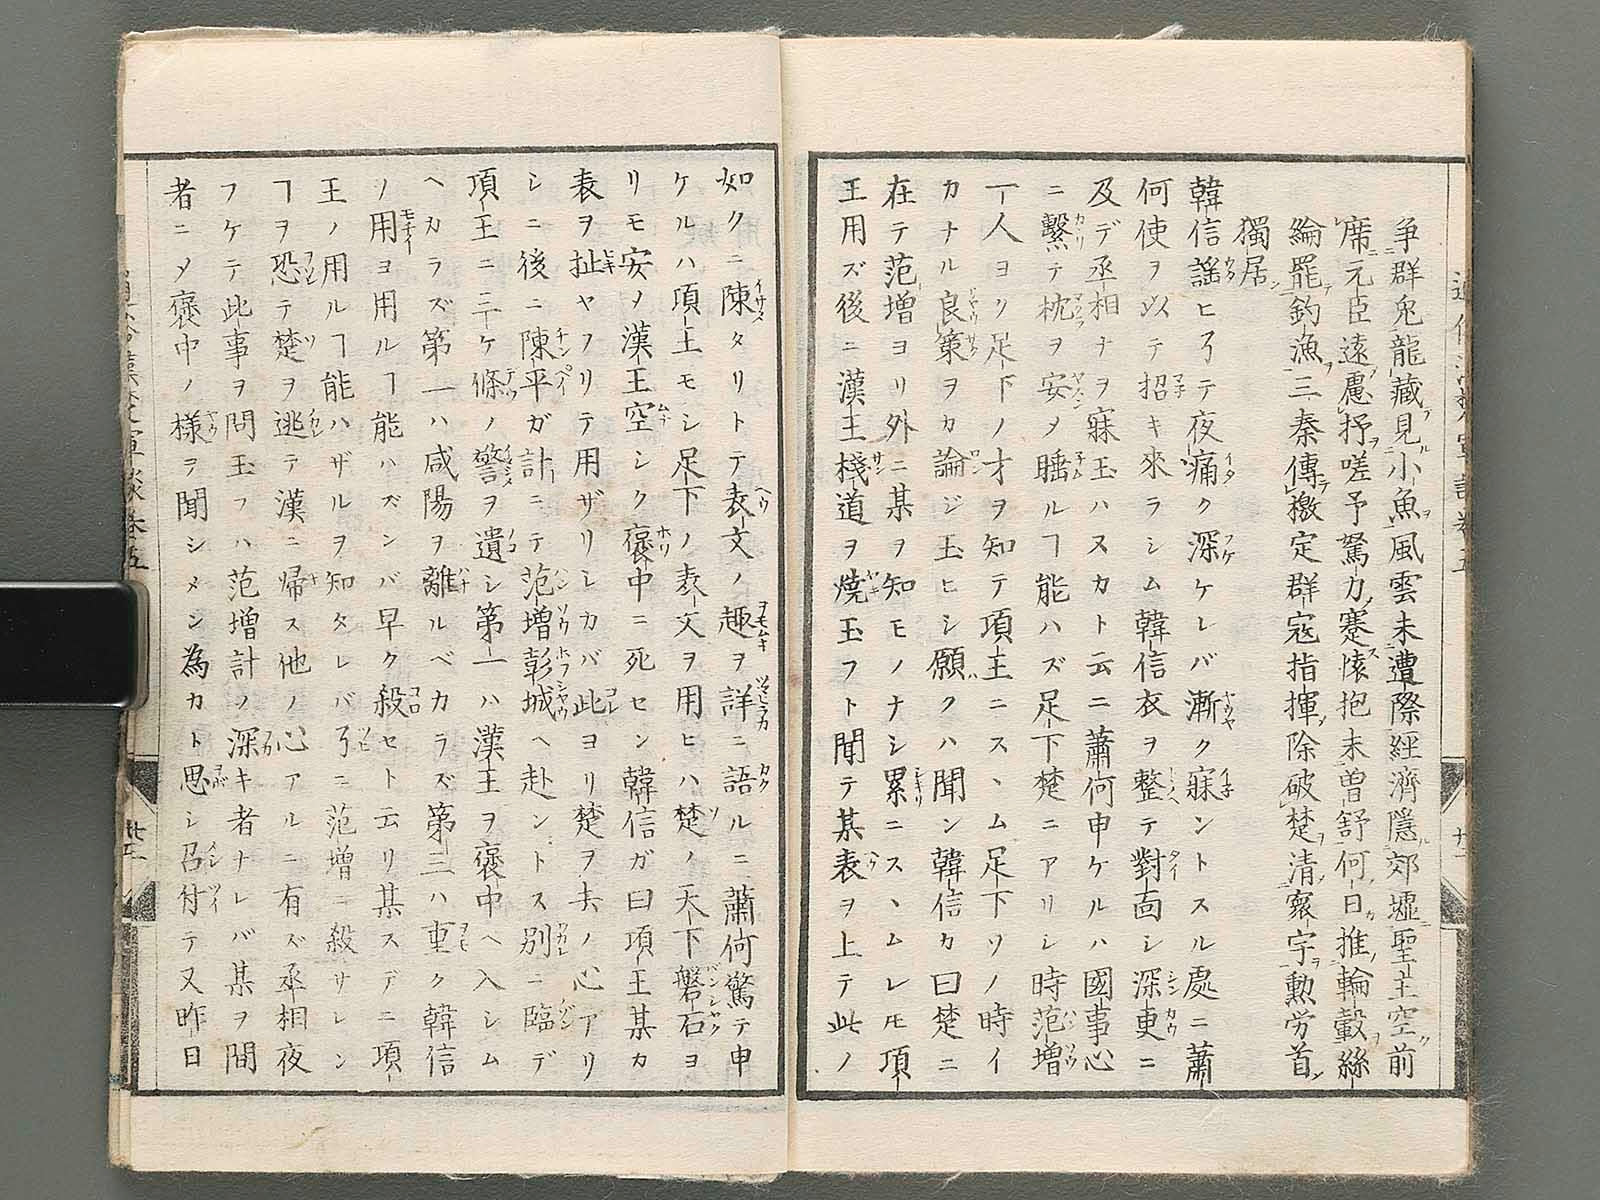 争群兎龍藏見小魚風雲未遭際經濟隱郊墟聖主空前
席元臣遠慮抒嗟予駑力蹇懐抱未曽舒何日推輪轂絲
綸罷釣漁三秦傳檄定群寇指揮除破楚清寰宇勲労首
獨居
韓信謡ヒ了テ夜痛ク深ケレバ漸ク寐ントスル處ニ蕭
何使ヲ以テ招キ來ラシム韓信衣ヲ整テ對面シ深更ニ
及デ丞相ナヲ寐玉ハスカト云ニ蕭何申ケルハ國事心
ニ繫テ枕ヲ安メ睡ルヿ能ハズ足下楚ニアリシ時范増
一人ヨク足下ノ才ヲ知テ項王ニスヽム足下ソノ時イ
カナル良策ヲカ論ジ玉ヒシ願クハ聞ン韓信カ曰楚ニ
在テ范増ヨリ外ニ某ヲ知モノナシ累ニスヽムレ𪜈項
王用ズ後ニ漢王棧道ヲ焼玉フト聞テ某表ヲ上テ此ノ
如クニ陳タリトテ表文ノ趣ヲ詳ニ語ルニ蕭何驚テ申
ケルハ項王モシ足下ノ表文ヲ用ヒハ楚ノ天下磐石ヨ
リモ安ノ漢王空シク褒中ニ死セン韓信ガ曰項王某カ
表ヲ扯ヤフリテ用ザリシカバ此ヨリ楚ヲ去ノ心アリ
シニ後ニ陳平ガ計ニテ范増彭城ヘ赴ントス別ニ臨デ
項王ニ三ケ條ノ警ヲ遺シ第一ハ漢王ヲ褒中ヘ入シム
ヘカラズ第二ハ咸陽ヲ離ルベカラズ第三ハ重ク韓信
ノ用ヨ用ルヿ能ハズンバ早ク殺セト云リ某スデニ項
王ノ用ルヿ能ハザルヲ知タレバ了ニ范増ニ殺サレン
ヿヲ恐テ楚ヲ逃テ漢ニ帰ス他ノ心アルニ有ズ丞相夜
フケテ此事ヲ問玉フハ范増計ノ深キ者ナレバ某ヲ間
者ニメ褒中ノ様ヲ聞シメン為カト思シ召付テ又昨日